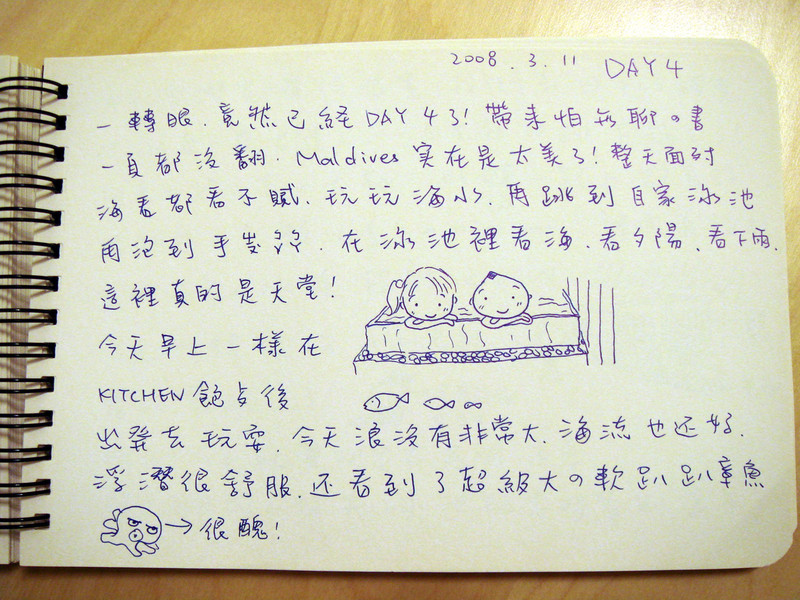 2008.3.11 DAY 4
一轉眼.竟然已經DAY 4了!帶來怕無聊の書
一頁都沒翻.Maldives實在是太美了!整天面對
海看都看不膩.玩玩海水.再跳到自家泳池
再泡到手皺皺.在泳池裡看海.看夕陽、看下雨.
這裡真的是天堂!
今天早上一樣在
KITCHEN飽足後
出發去玩耍.今天浪沒有非常大.海流也还好.
浮潛很舒服.还看到了超級大の軟趴趴章魚
→很醜!